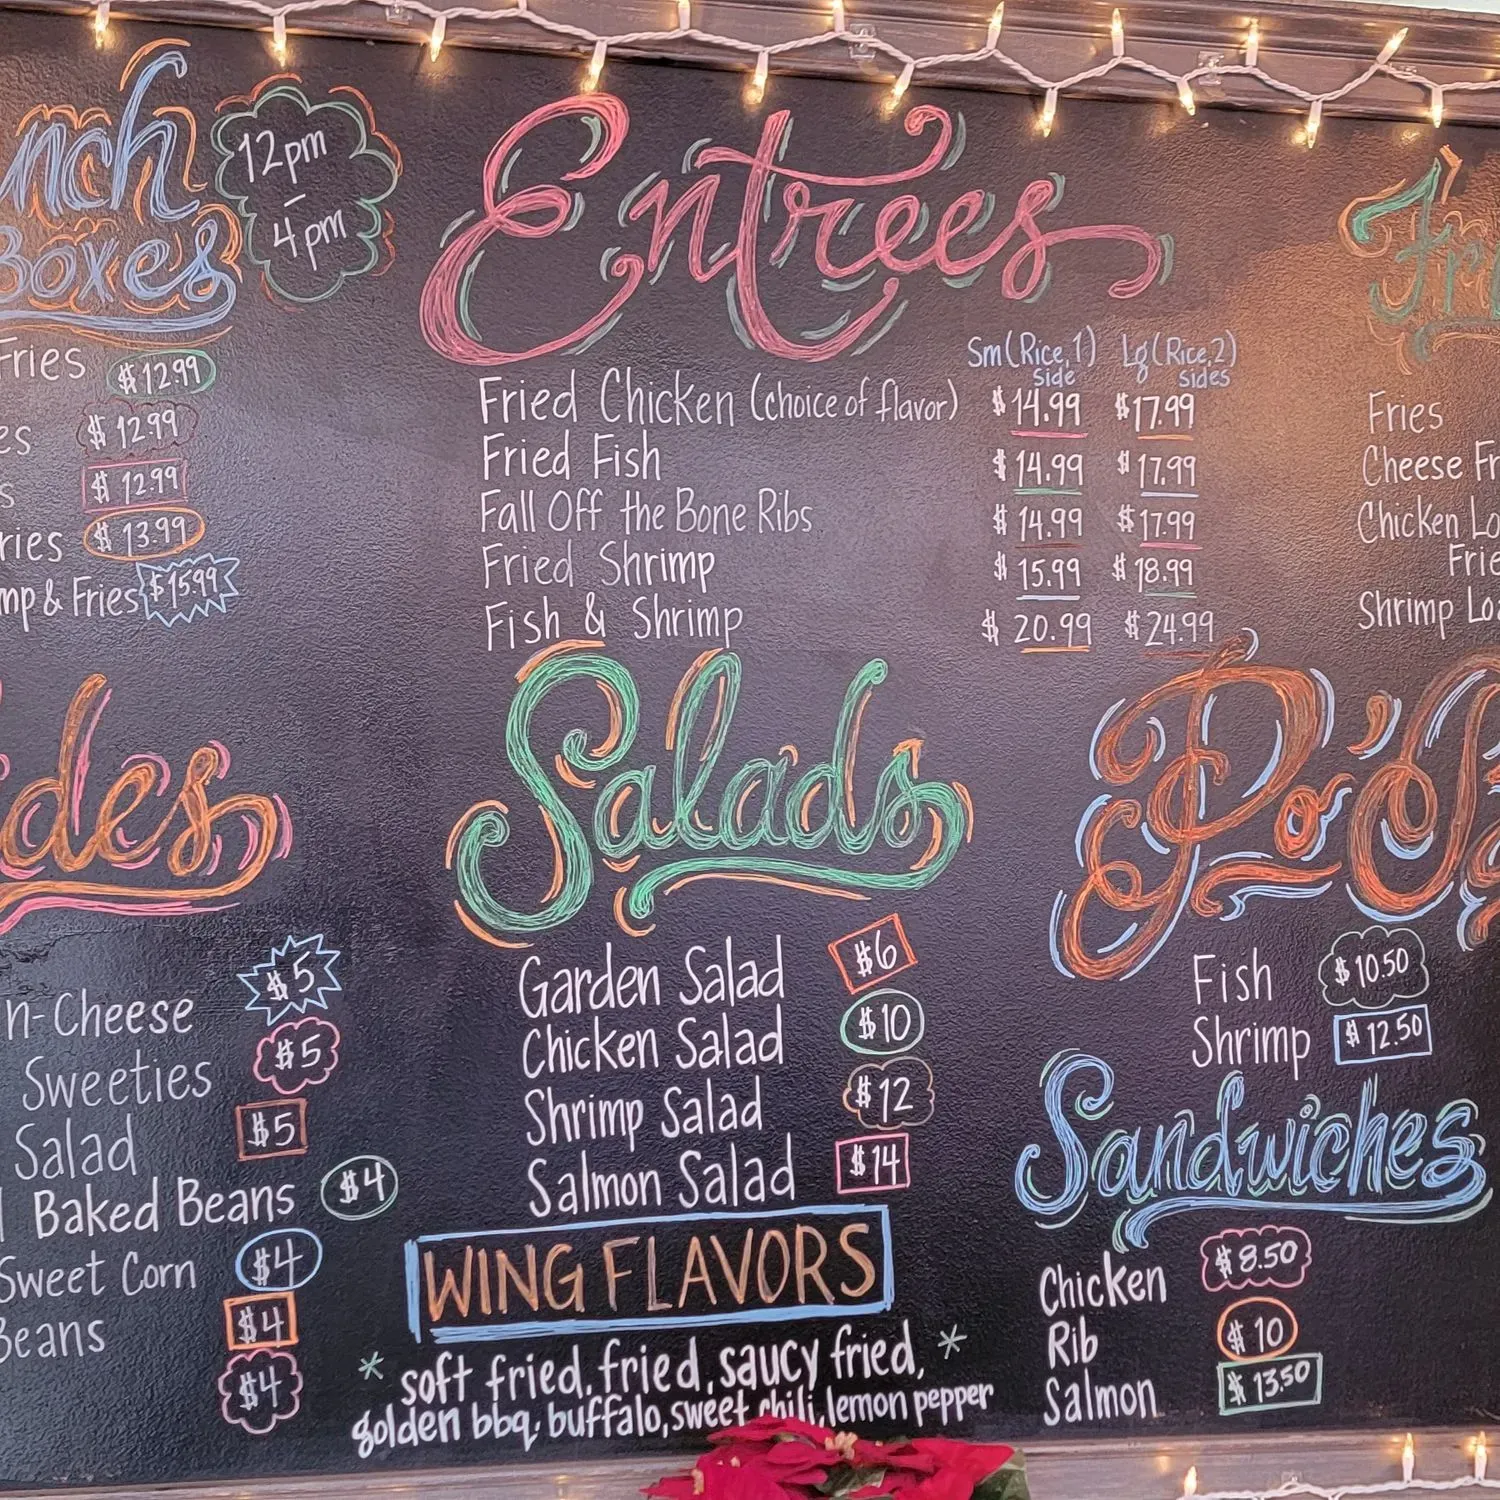 Boxes
12pm
-
4pm
Fries $12.99
$12.99
$12.99
$13.99
& Fries $15.99
Entrees
Sm (Rice, 1 side) Lg (Rice, 2 sides)
Fried Chicken (choice of flavor) $14.99 $17.99
Fried Fish $14.99 $17.99
Fall Off the Bone Ribs $14.99 $17.99
Fried Shrimp $15.99 $18.99
Fish & Shrimp $20.99 $24.99
Fries
Cheese
Chicken
Shrimp
$5
n-Cheese
Sweeties $5
Salad $5
Baked Beans $4
Sweet Corn $4
Beans $4
$4
Salads
Garden Salad $6
Chicken Salad $10
Shrimp Salad $12
Salmon Salad $14
WING FLAVORS
* soft fried, fried, saucy fried, *
golden bbq, buffalo, sweet chili, lemon pepper
Po'
Fish $10.50
Shrimp $12.50
Sandwiches
Chicken $8.50
Rib $10
Salmon $13.50